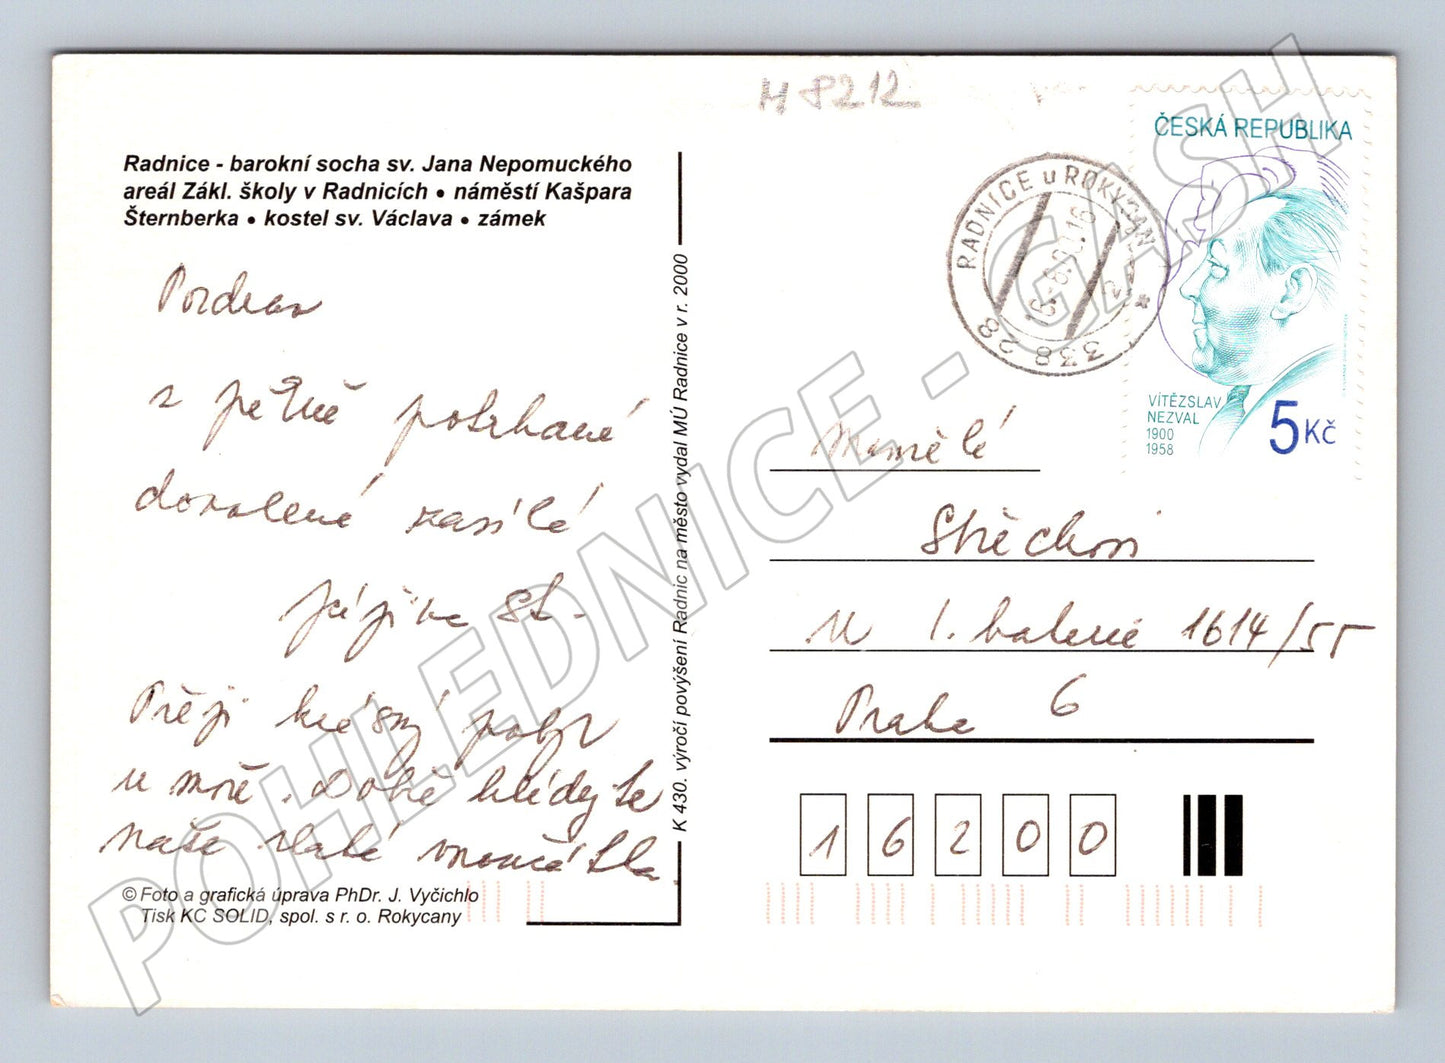 H 8212
Radnice - barokní socha sv. Jana Nepomuckého
areál Zákl. školy v Radnicích • náměstí Kašpara
Šternberka • kostel sv. Václava • zámek
Pozdrav
z pěkně potrhané
dovolené zasílá
Přeji krásný pobyt
u moře. Dobře hlídejte
naše zlaté vnoučátka
© Foto a grafická úprava PhDr. J. Vyčichlo
Tisk KC SOLID, spol. s r. o. Rokycany
K 430. výročí povýšení Radnic na město vydal MÚ Radnice v r. 2000
RADNICE u ROKYCAN
338 28
ČESKÁ REPUBLIKA
VÍTĚZSLAV
NEZVAL
1900
1958
5 Kč
1614/55
Praha 6
16200
POHLEDNICE - GASH